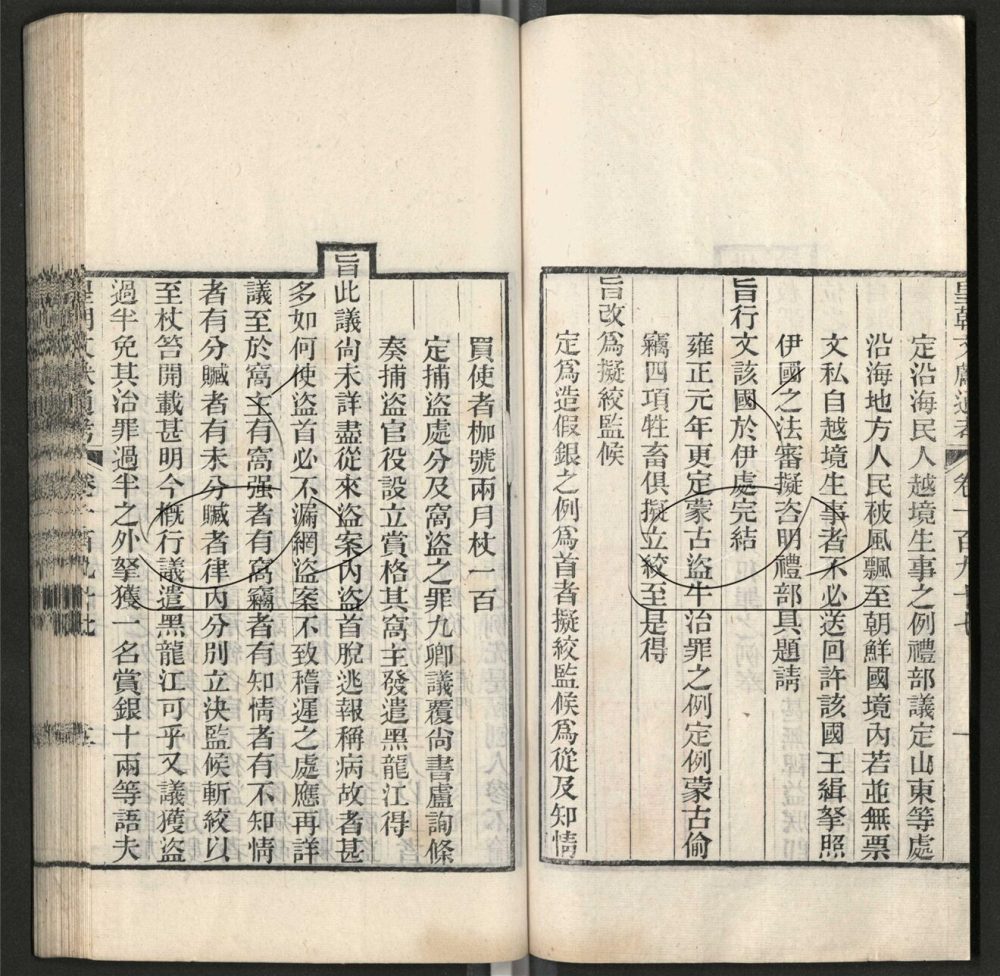 皇朝文獻通考 卷一百九十七
定沿海民人越境生事之例禮部議定山東等處
沿海地方人民被風飄至朝鮮國境內若並無票
文私自越境生事者不必送回許該國王緝拏照
伊國之法審擬咨明禮部具題請
旨行文該國於伊處完結
雍正元年更定蒙古盜牛治罪之例定例蒙古偷
竊四項牲畜俱擬立絞至是得
旨改為擬絞監候
定為造假銀之例為首者擬絞監候為從及知情
買使者枷號兩月杖一百
定捕盜處分及窩盜之罪九卿議覆尚書盧詢條
奏捕盜官役設立賞格其窩主發遣黑龍江得
旨此議尚未詳盡從來盜案內盜首脫逃報稱病故者甚
多如何使盜首必不漏網盜案不致稽遲之處應再詳
議至於窩主有窩强者有窩竊者有知情者有不知情
者有分贓者有未分贓者律內分別立決監候斬絞以
至杖笞開載甚明今概行議遣黑龍江可乎又議獲盜
過半免其治罪過半之外拏獲一名賞銀十兩等語夫
皇朝文獻通考 卷一百九十七